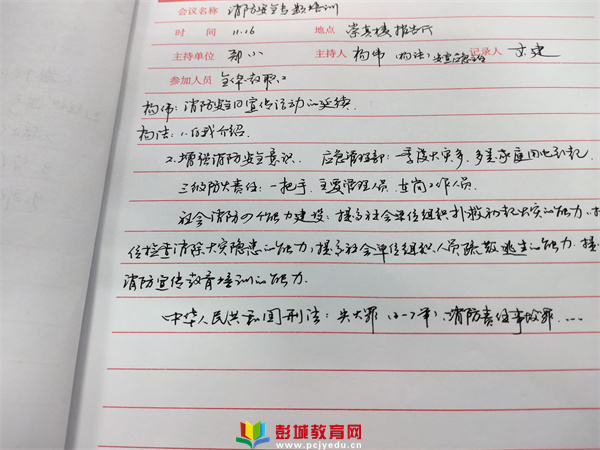 会议名称 消防安全专题培训
时 间 11.16 地点 崇真楼报告厅
主持单位 郑小 主持人 杨伟 记录人
参加人员 全体教职工
杨伟：消防安全日宣传活动的延续.
杨法：1.自我介绍.
2.增强消防安全意识. 应急管理部：冬季火灾多，多是家庭用电引起.
三级防火责任：一把手、主要管理人员、在岗工作人员.
社会消防四个能力建设：提高社会单位组织扑救初起火灾的能力，
位检查消除火灾隐患的能力，提高社会单位组织人员疏散逃生的能力.提
消防宣传教育培训的能力.
中华人民共和国刑法：失火罪（3-7年）、消防责任事故罪....
彭城教育网
www.pcjyedu.cn